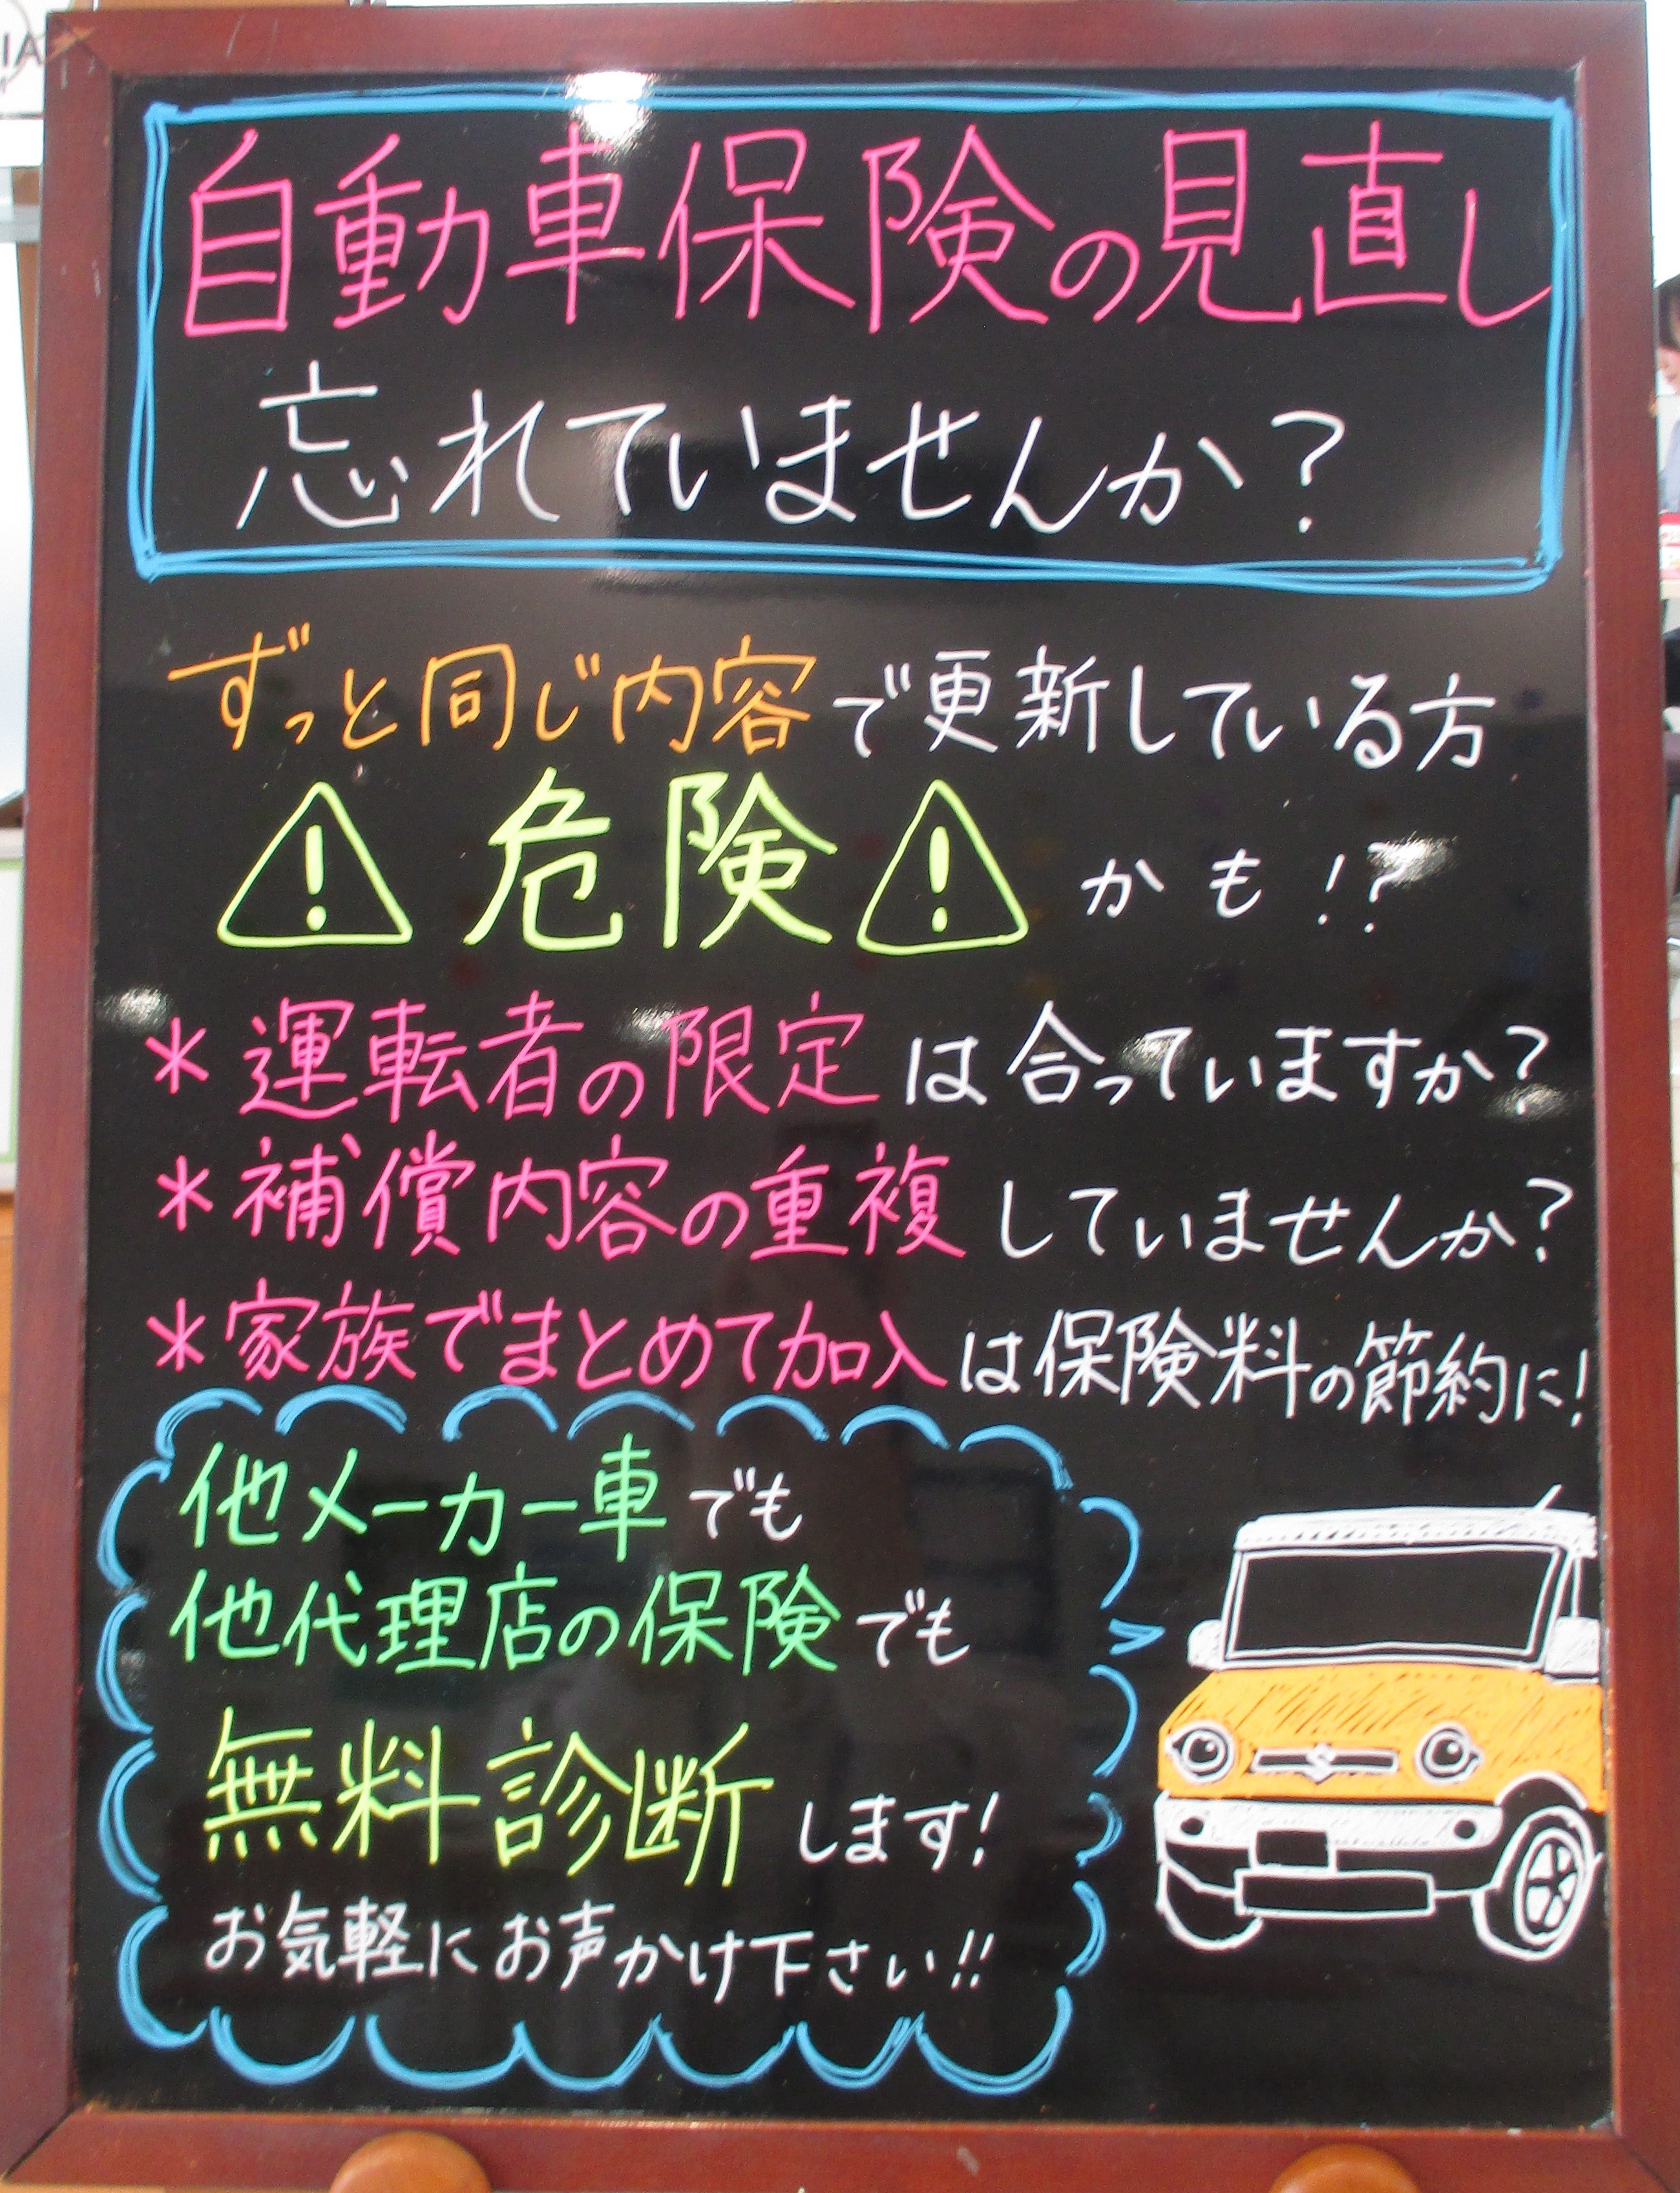 自動車保険の見直し
忘れていませんか？
ずっと同じ内容で更新している方
危険かも!?
＊運転者の限定は合っていますか？
＊補償内容の重複していませんか？
＊家族でまとめて加入は保険料の節約に！
他メーカー車でも
他代理店の保険でも
無料診断します！
お気軽にお声かけ下さい!!